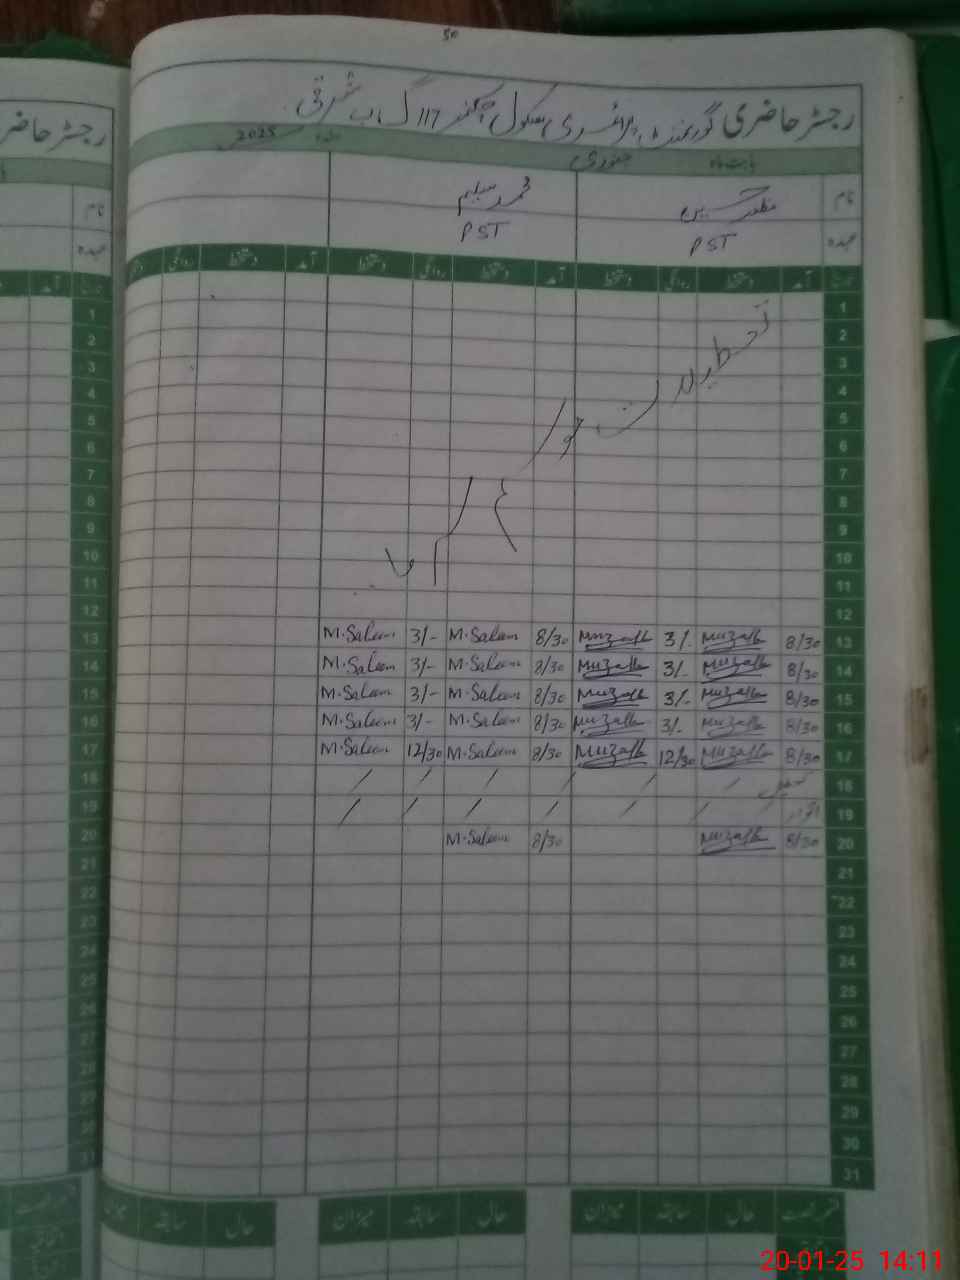 50
رجسٹر حاضری گورنمنٹ پرائمری سکول چک نمبر 117 گ ب شرقی
بابت ماہ جنوری 2025
نام مظفر حسین محمد سلیم
عہدہ PST PST
تاریخ آمد دستخط روانگی دستخط آمد دستخط روانگی دستخط آمد دستخط روانگی
1
2
3
4
5
6
7
8
9
10
11
12
تعطیلات موسم سرما
13 8/30 Muzaffar 3/- Muzaffar 8/30 M.Saleem 3/- M.Saleem
14 8/30 Muzaffar 3/- Muzaffar 8/30 M.Saleem 3/- M.Saleem
15 8/30 Muzaffar 3/- Muzaffar 8/30 M.Saleem 3/- M.Saleem
16 8/30 Muzaffar 3/- Muzaffar 8/30 M.Saleem 3/- M.Saleem
17 8/30 Muzaffar 12/30 Muzaffar 8/30 M.Saleem 12/30 M.Saleem
18
19 اتوار
20 8/30 Muzaffar 8/30 M.Saleem
21
22
23
24
25
26
27
28
29
30
31
حال سابقہ میزان حال سابقہ میزان حال سابقہ میزان
رجسٹر حاضری
نام
عہدہ
20-01-25 14:11